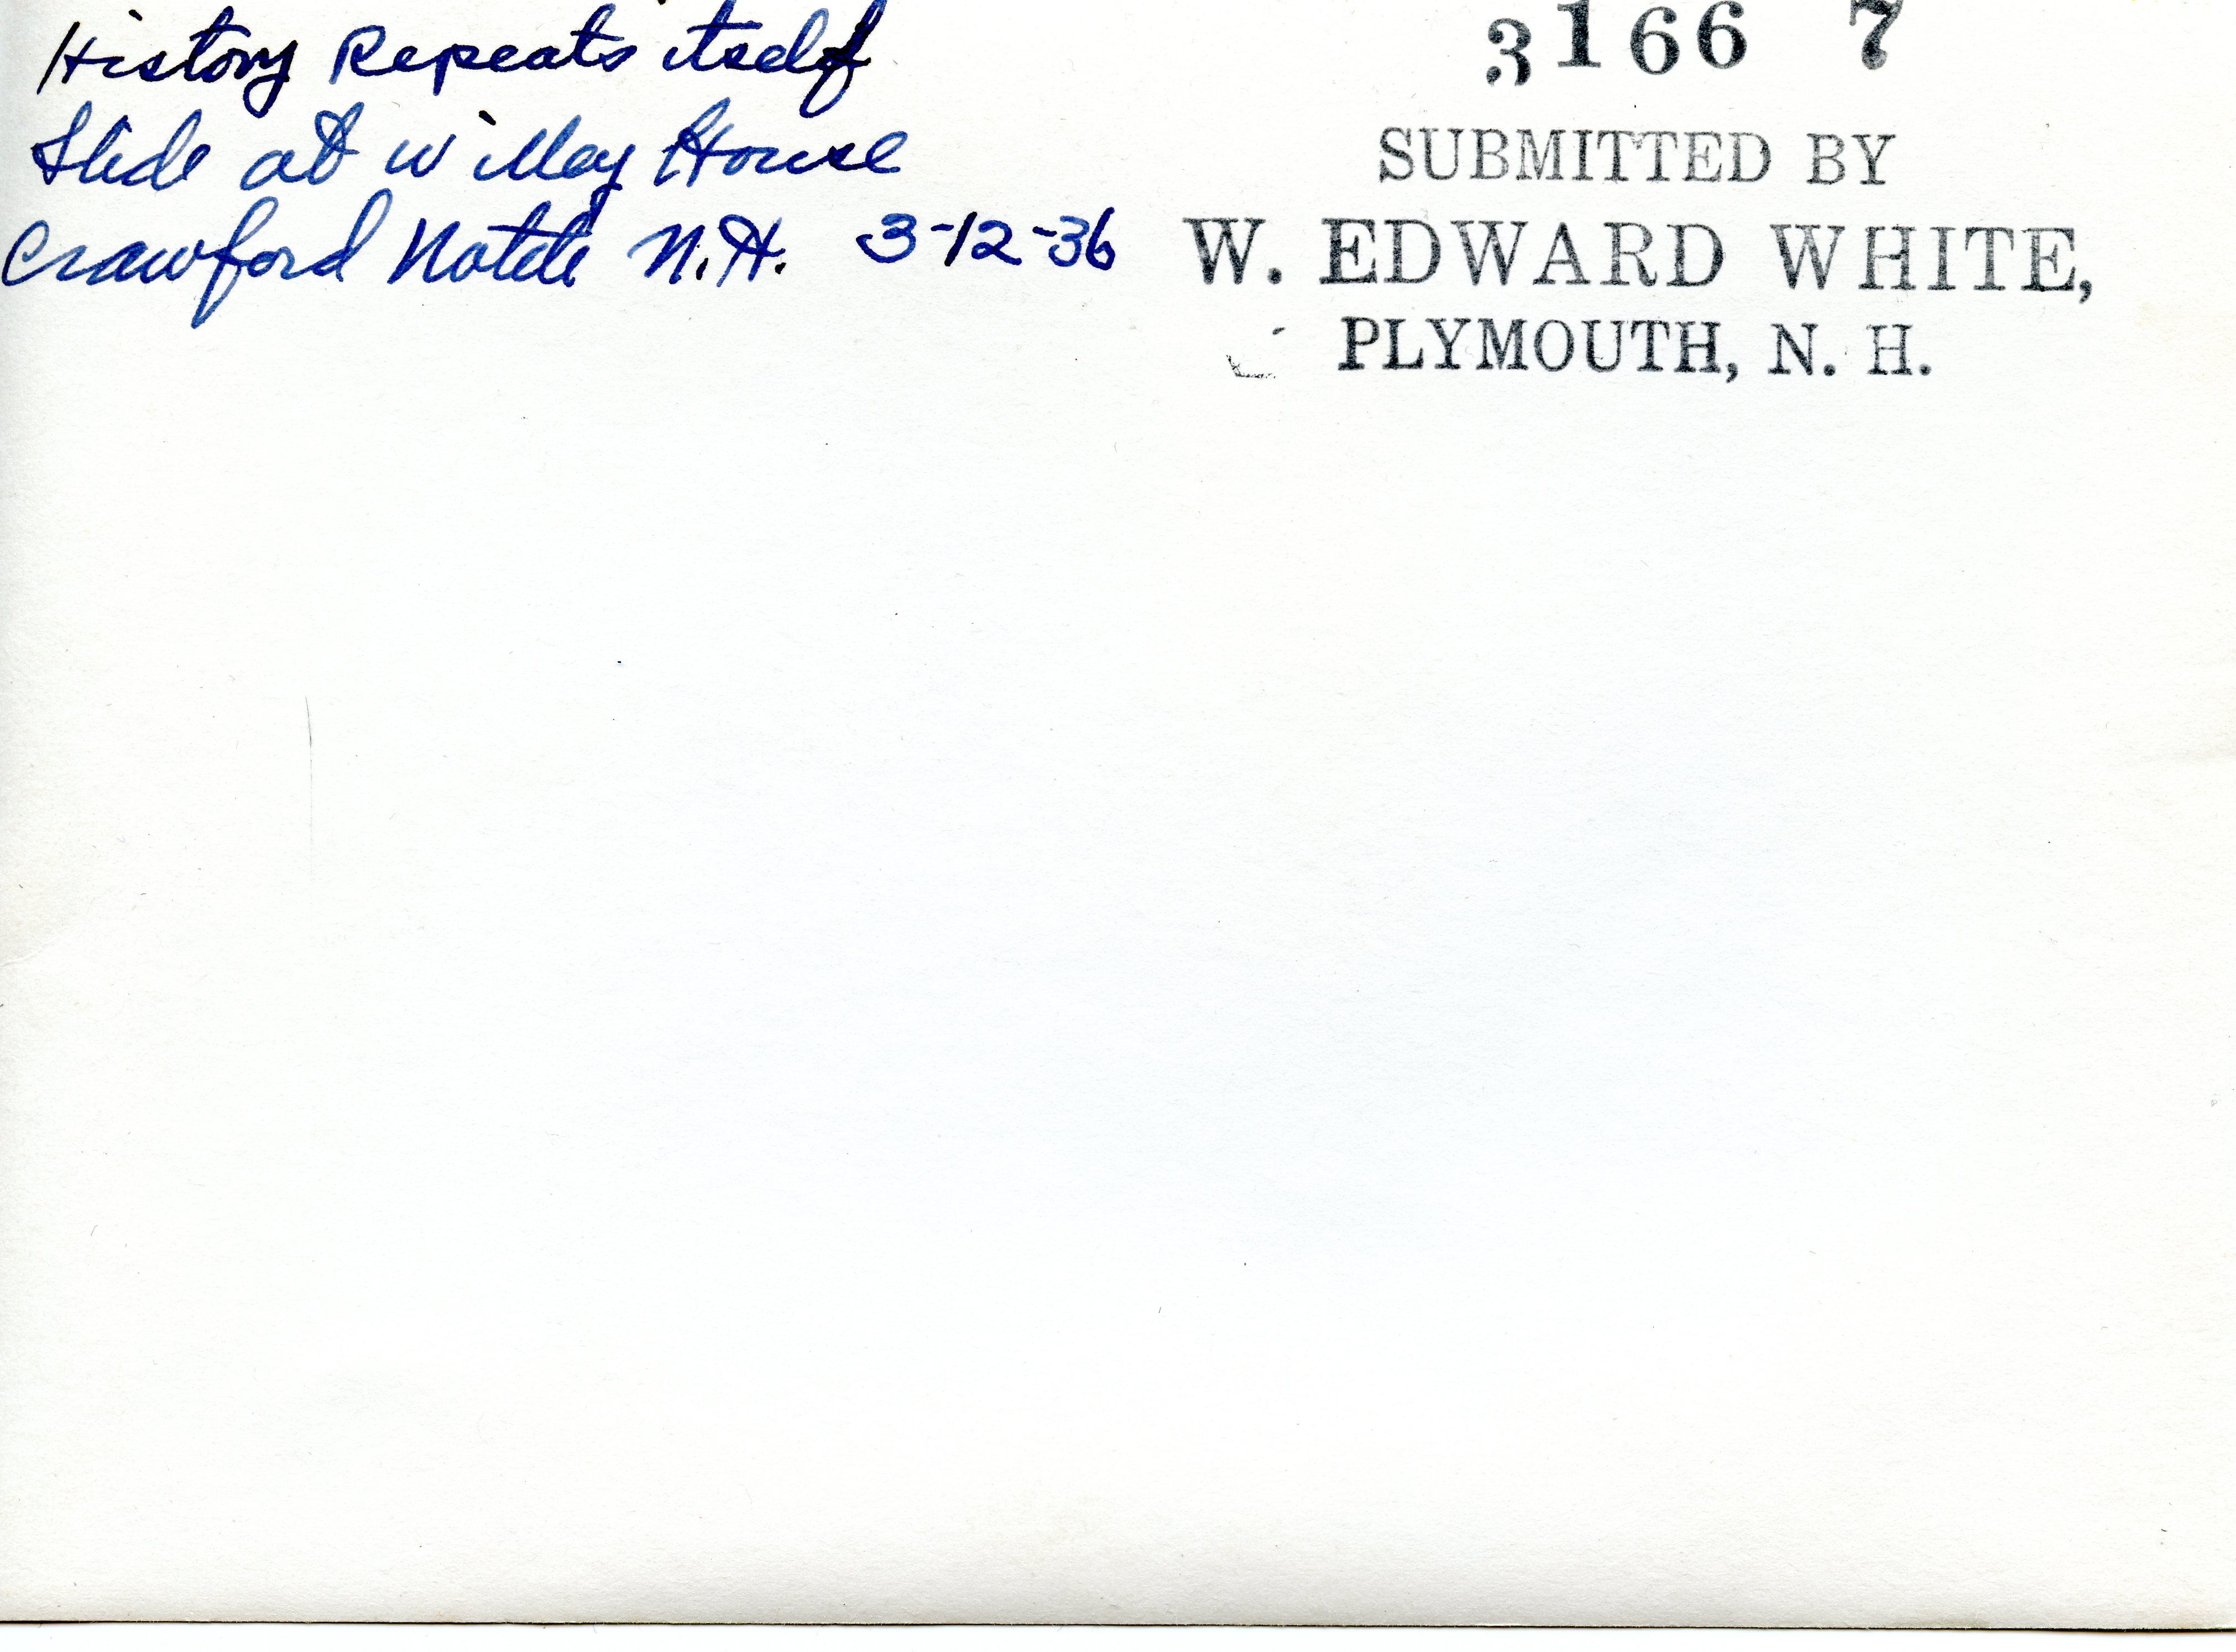 History Repeats itself
Slide at Willey House
Crawford Notch N.H. 3-12-36
3166 7
SUBMITTED BY
W. EDWARD WHITE,
PLYMOUTH, N. H.